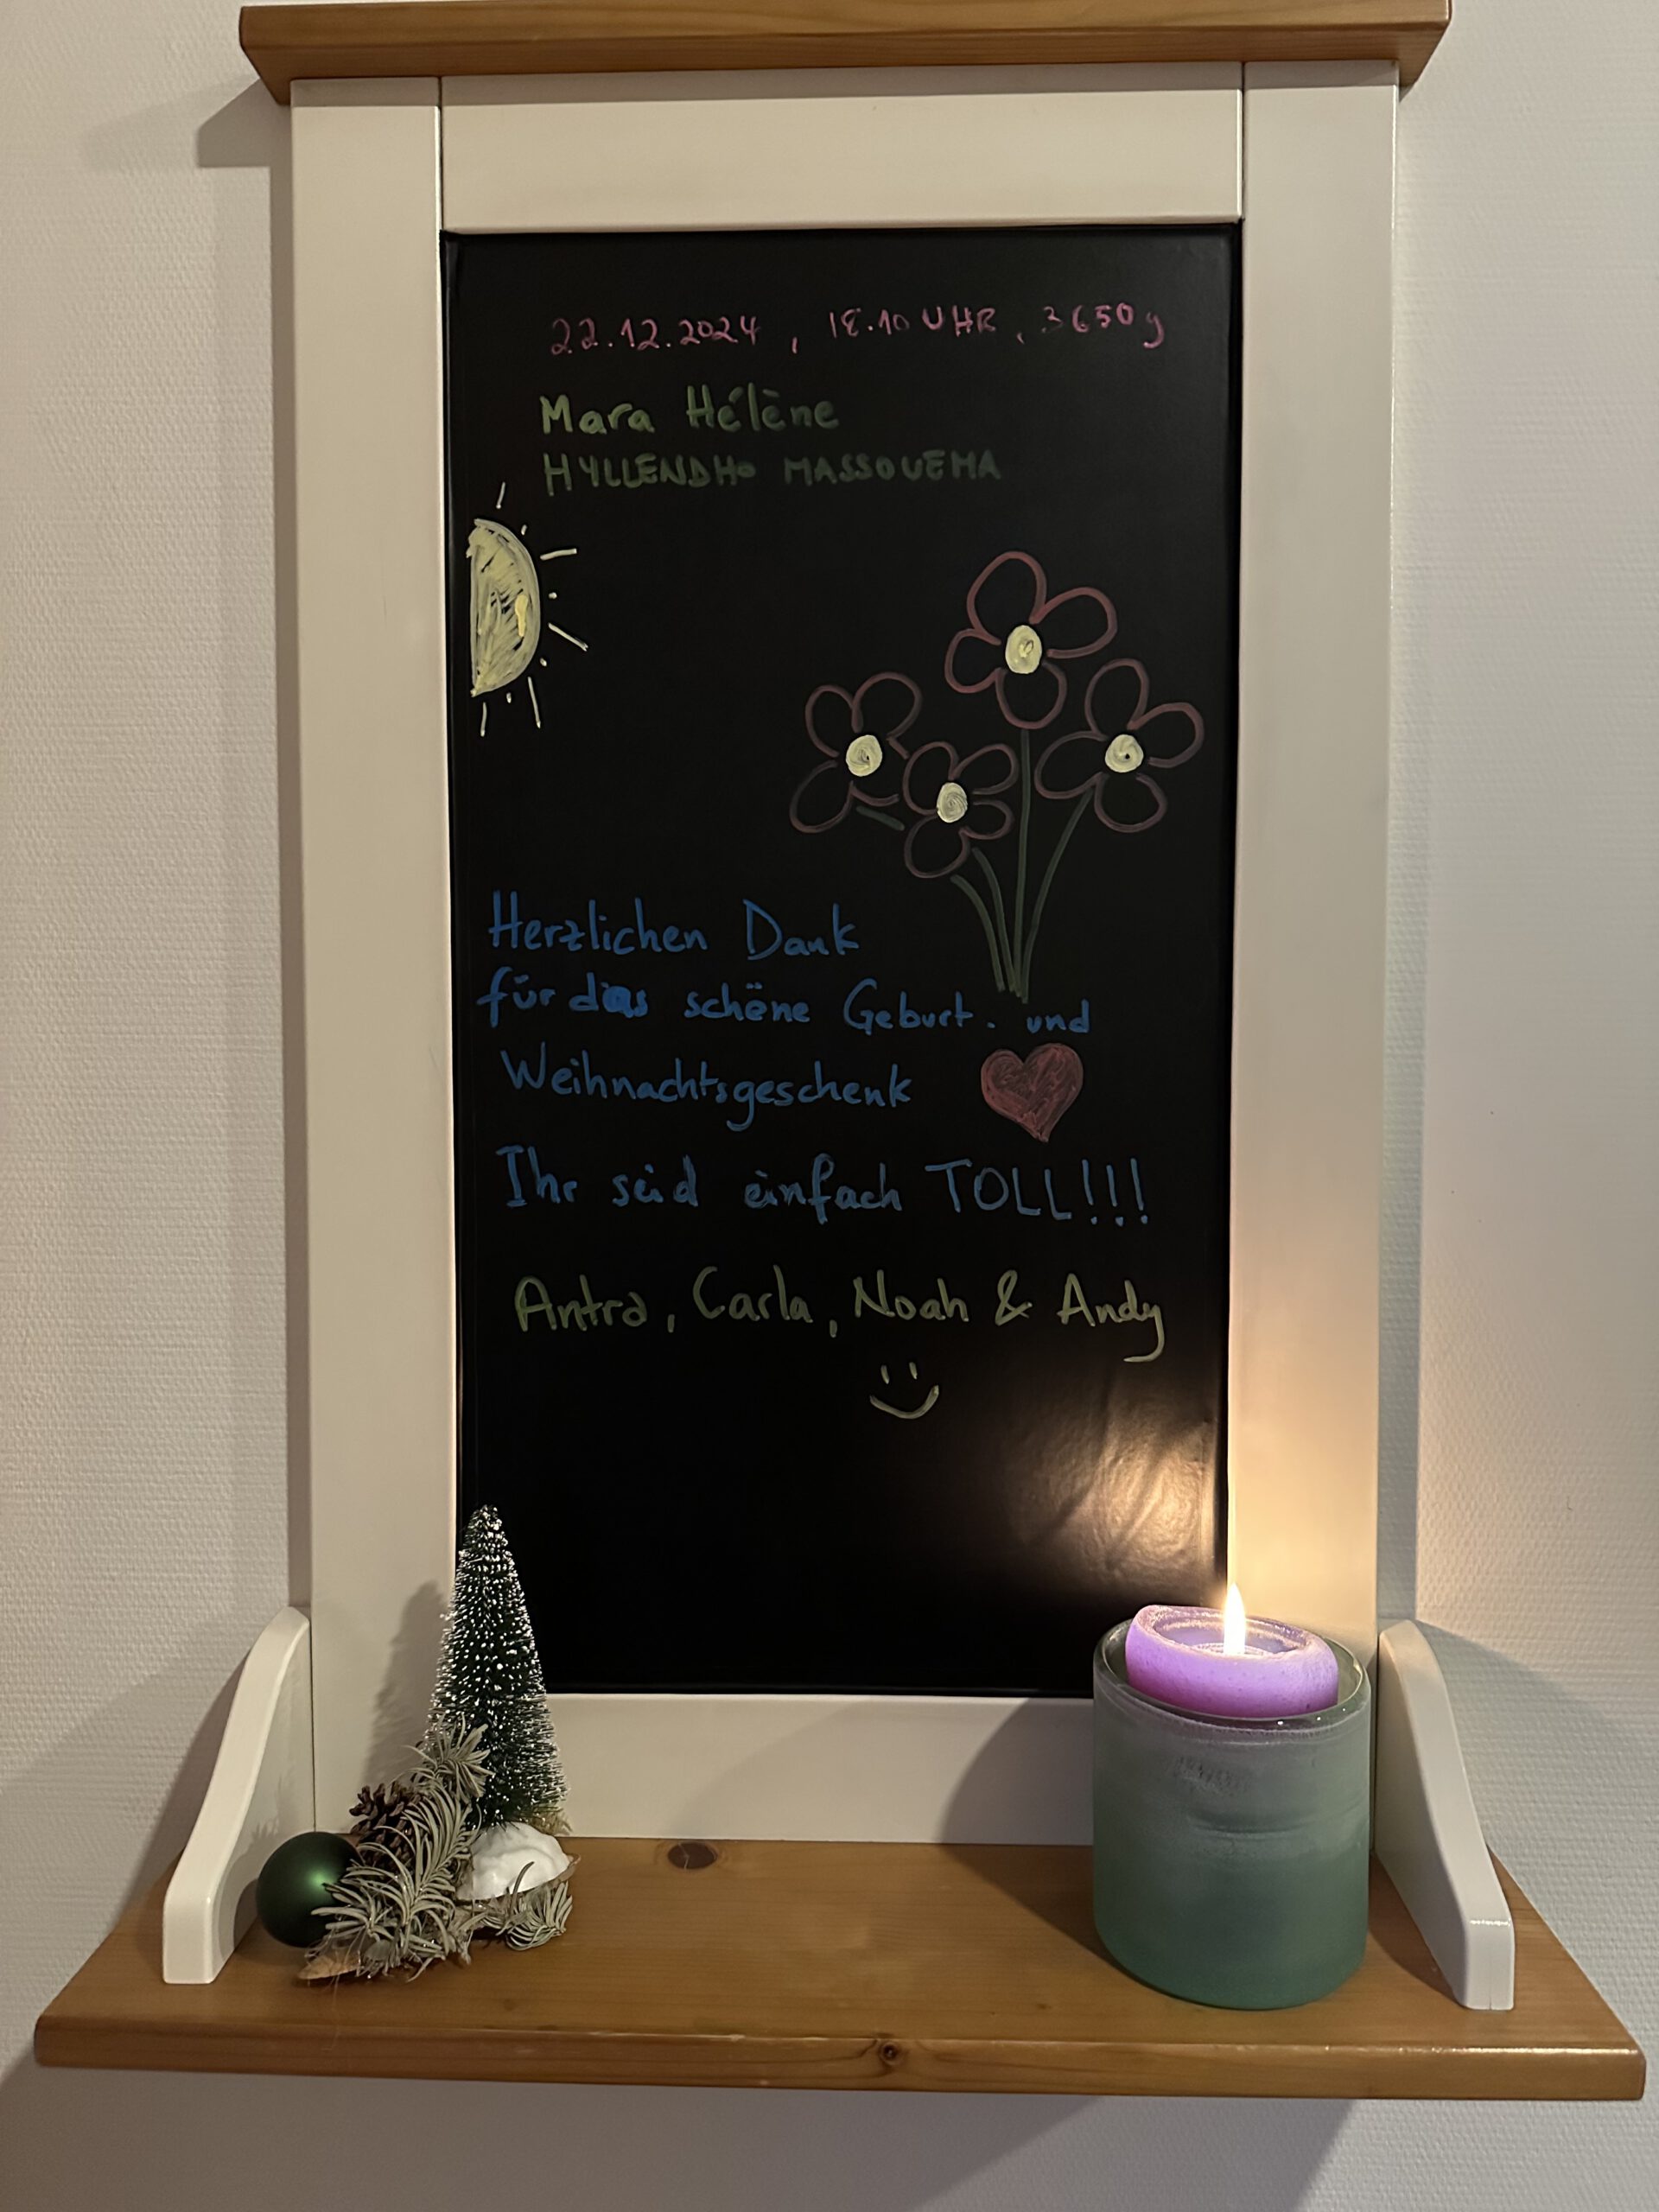 22.12.2024, 18.10 UHR, 3650g
Mara Hélène
HYLLENDHO MASSOUEMA
Herzlichen Dank
für das schöne Geburt. und
Weihnachtsgeschenk
Ihr seid einfach TOLL!!!
Antra, Carla, Noah & Andy